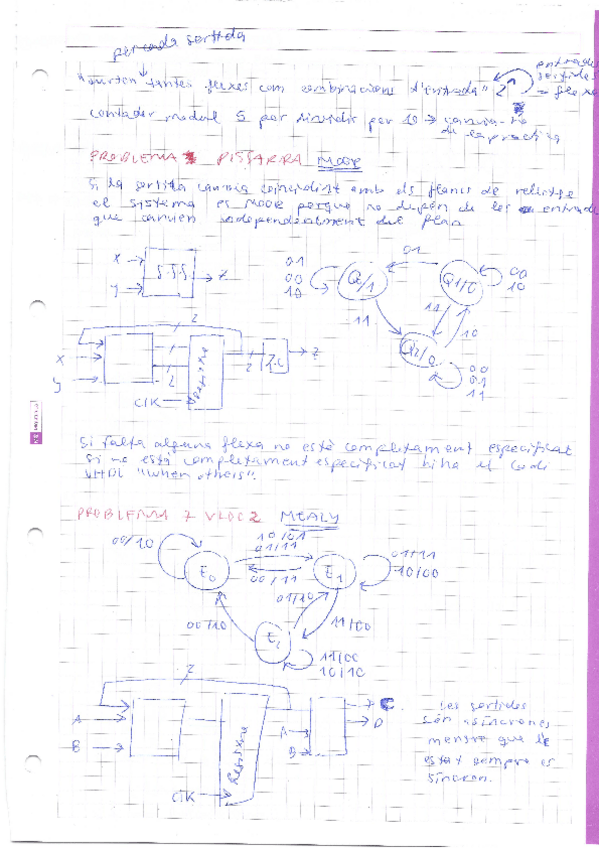 per cada sortida
"surten tantes fletxes com combinacions d'entrada" 2
entrades
sortides
→ fletxa
contador modul 5 per dividir per 10 →
de la practica
PROBLEMA PISSARRA MOORE
Si la sortida canvia coincidint amb els flancs de rellotge
el sistema es MOORE perque no depen de les entrades
que canvien independentment del flanc
X
Y
S.S.S
Z
01
00
10
Q0/1
01
Q1/0
00
10
11
11
10
Q2/0
00
01
11
2
X
Y
2
Registre
CLK
2
C.C
Z
Si falta alguna fletxa no està completament especificat
si no està completament especificat hi ha el codi
VHDL "when others".
PROBLEMA 7 BLOC 2 MEALY
00/10
10/01
01/11
E0
E1
00/11
01/11
10/00
01/10
11/00
00/10
E2
11/00
10/10
2
A
B
Registre
CLK
A
B
C
D
Les sortides
són asíncrones
mentre que l'
estat sempre es
síncron.